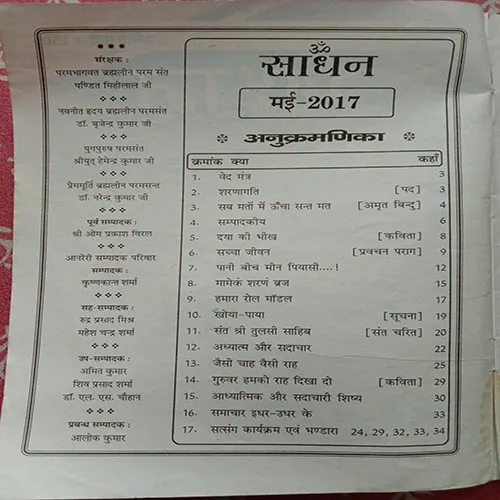 संरक्षक :
परमभागवत ब्रह्मलीन परम संत
पण्डित मिहीलाल जी
नवनीत हृदय ब्रह्मलीन परमसंत
डॉ. बृजेन्द्र कुमार जी
युगपुरुष परमसंत
श्रीयुत् हेमेन्द्र कुमार जी
प्रेममूर्ति ब्रह्मलीन परमसन्त
डॉ. नरेन्द्र कुमार जी
पूर्व सम्पादक :
श्री ओम प्रकाश विरल
आनरेरी सम्पादक परिवार
सम्पादक :
कृष्णकान्त शर्मा
सह-सम्पादक :
रुद्र प्रसाद मिश्र
महेश चन्द्र शर्मा
उप-सम्पादक :
अमित कुमार
शिव प्रसाद शर्मा
डॉ. एल. एस. चौहान
प्रबन्ध सम्पादक :
आलोक कुमार
ॐ
साधन
मई-2017
अनुक्रमणिका
क्रमांक क्या कहाँ
1. वेद मंत्र 3
2. शरणागति [पद] 3
3. सब मतों में ऊँचा सन्त मत [अमृत बिन्दु] 4
4. सम्पादकीय 6
5. दया की भीख [कविता] 8
6. सच्चा जीवन [प्रवचन पराग] 9
7. पानी बीच मीन पियासी....! 12
8. मामेकं शरणं ब्रज 15
9. हमारा रोल मॉडल 17
10. खोया-पाया [सूचना] 19
11. संत श्री तुलसी साहिब [संत चरित] 20
12. अध्यात्म और सदाचार 22
13. जैसी चाह वैसी राह 25
14. गुरुवर हमको राह दिखा दो [कविता] 29
15. आध्यात्मिक और सदाचारी शिष्य 30
16. समाचार इधर-उधर के 33
17. सत्संग कार्यक्रम एवं भण्डारा 24, 29, 32, 33, 34